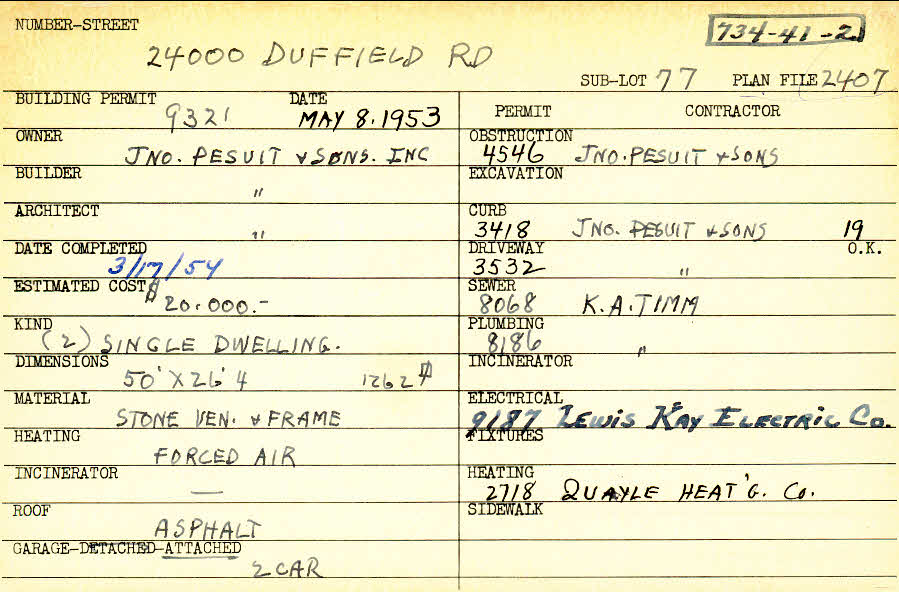 NUMBER-STREET
734-41-2
24000 DUFFIELD RD
SUB-LOT 77 PLAN FILE 2407
BUILDING PERMIT DATE
9321 MAY 8.1953
OWNER
JNO. PESUIT & SONS. INC
BUILDER
"
ARCHITECT
"
DATE COMPLETED
3/17/54
ESTIMATED COST
$20.000.-
KIND
(2) SINGLE DWELLING.
DIMENSIONS
50' X 26' 4 1262 #
MATERIAL
STONE VEN. & FRAME
HEATING
FORCED AIR
INCINERATOR
—
ROOF
ASPHALT
GARAGE-DETACHED-ATTACHED
2 CAR
PERMIT CONTRACTOR
OBSTRUCTION
4546 JNO. PESUIT & SONS
EXCAVATION
CURB
3418 JNO. PESUIT & SONS 19
DRIVEWAY O.K.
3532 "
SEWER
8068 K.A. TIMM
PLUMBING
8186 "
INCINERATOR
ELECTRICAL
9187 LEWIS KAY ELECTRIC CO.
FIXTURES
HEATING
2718 QUAYLE HEAT'G. CO.
SIDEWALK